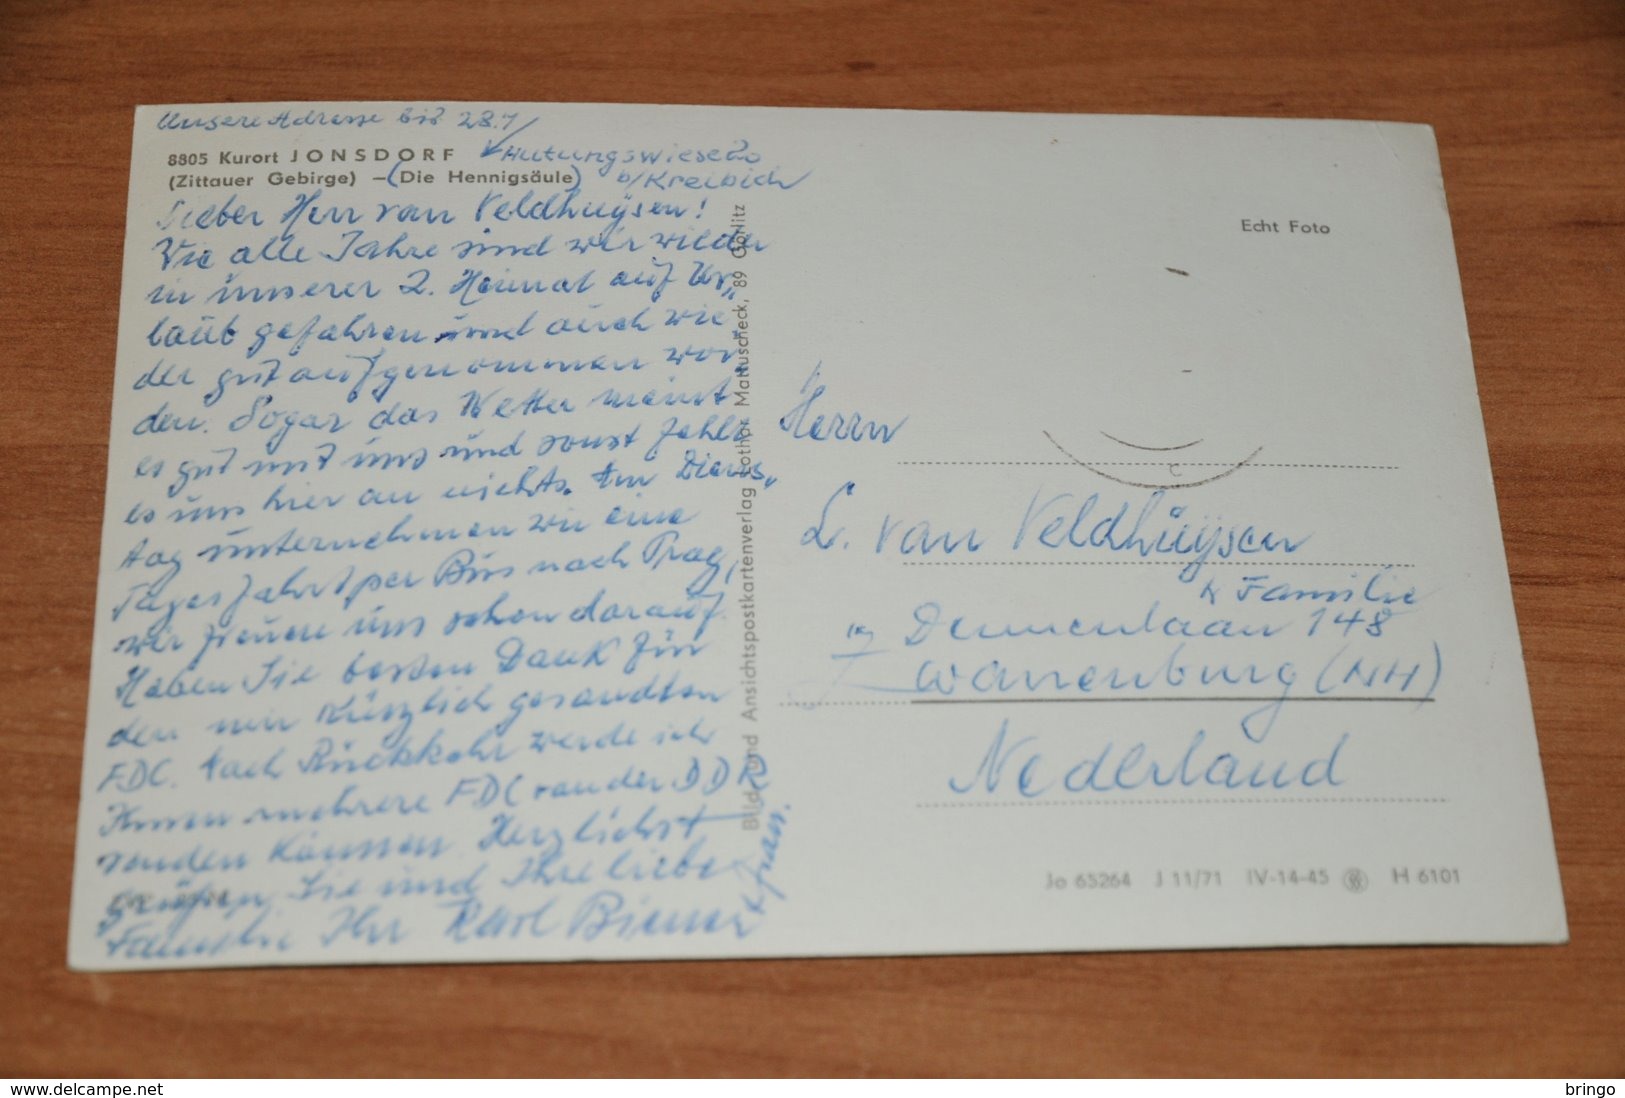 Unsere Adresse bis 28.7/
8805 Kurort JONSDORF
Hutungswiese 20
(Zittauer Gebirge) – (Die Hennigsäule)
b/Kreibich
Lieber Herr van Veldhuijsen!
Wie alle Jahre sind wir wieder
in unserer 2. Heimat auf Ur„
laub gefahren und auch wie„
der gut aufgenommen wor„
den. Sogar das Wetter meint
es gut mit uns und sonst fehlt
es uns hier an nichts. Am Diens„
tag unternehmen wir eine
Tagesfahrt per Bus nach Prag,
wir freuen uns schon darauf.
Haben Sie besten Dank für
den mir kürzlich gesandten
FDC. Nach Rückkehr werde ich
Ihnen mehrere FDC von der DDR
senden können. Herzlichst
grüßen Sie und Ihre liebe
Familie Ihr Karl
+ Frau.
Bild und Ansichtspostkartenverlag Lothar Mattuscheck, 89 Görlitz
Echt Foto
Herrn
L. van Veldhuijsen
& Familie
Dennenlaan 148
(NH)
Nederland
Jo 65264 J 11/71 IV-14-45 H 6101
delcampe.net
bringo